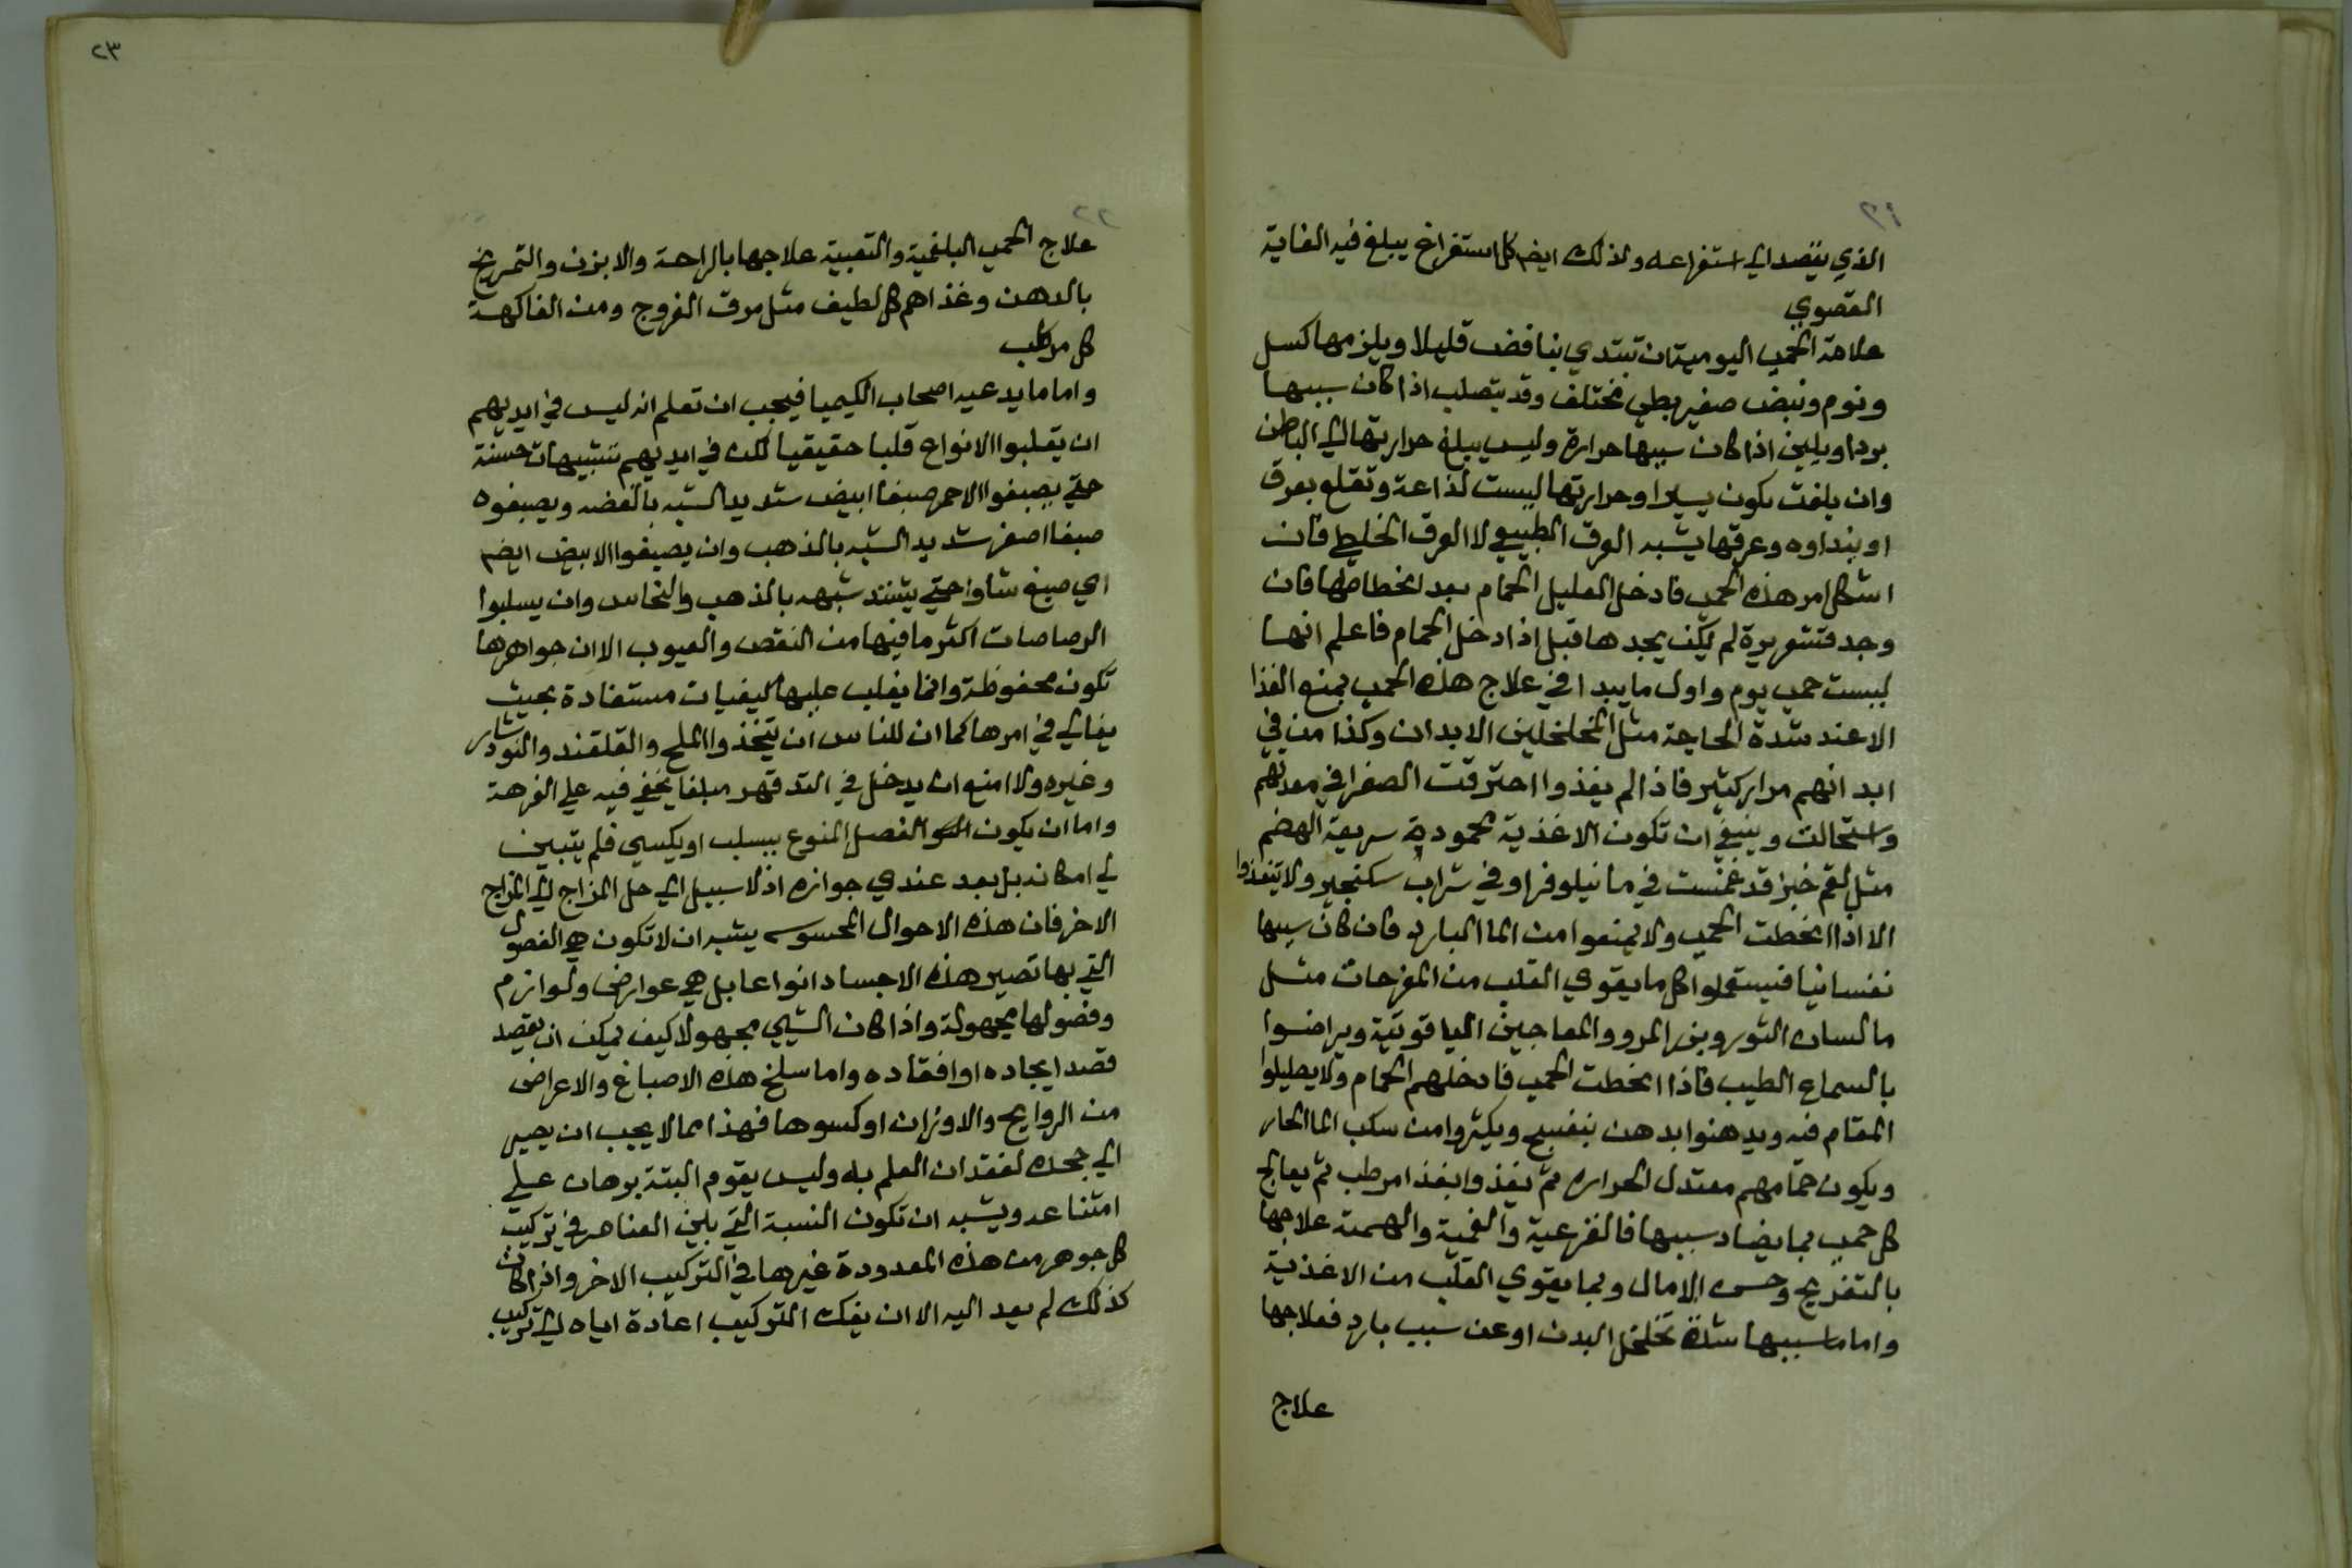 ٢١
الذي يتصدي الي استفراعه ولذلك ايضم كل استفراغ يبلغ فيه الغاية
القصوي
علامة الحمي اليومية ان تبتدي بنافض قليلا ويلزمها كسل
ونوم ونبض صغير بطي مختلف وقد يتصلب اذا كان سببها
بردا ويلين اذا كان سببها حرارة وليس يبلغ حرارتها الي الباطن
وان بلغت يكون يسيرا وحرارتها ليست لذاعة وتقلع بعرق
او بنداوه وعرقها يشبه العرق الطبيعي لا العرق الخلطي فان
اشكل امر هذه الحمي فادخل العليل الحمام بعد انحطاطها فان
وجد قشعريرة لم يكن يجدها قبل اذا دخل الحمام فاعلم انها
ليست حمي يوم واول ما يبدا في علاج هذه الحمي بمنع الغذا
الا عند شدة الحاجة مثل المخلخلين الابدان وكذا من في
ابدانهم مرار كثير فاذا لم يغذوا احترقت الصفرا في معدتهم
واستحالت وينبغي ان تكون الاغذية محمودة سريعة الهضم
مثل لقم خبز قد غمست في ما نيلوفر او في شراب سكنجبير ولا يتغذوا
الا اذا انحطت الحمي ولا يمنعوا من الما البارد فان كان سببها
نفسانيا فيستعملوا كل ما يقوي القلب من المفرحات مثل
ما لسان الثور وبزر المرو والمعاجين الياقوتية ويراضوا
بالسماع الطيب فاذا انحطت الحمي فادخلهم الحمام ولا يطيلوا
المقام فيه ويدهنوا بدهن بنفسج ويكثروا من سكب الما الحار
ويكون حمامهم معتدل الحراره ثم يغذوا بغذا مرطب ثم يعالج
كل حمي بما يضاد سببها فالفزعية والغمية والهمية علاجها
بالتفريح وحسن الامال وبما يقوي القلب من الاغذية
واما ما سببها شدة تخلخل البدن او عن سبب بارد فعلاجها
علاج
٢٣
٢٢
علاج الحمي البلغمية والتعبية علاجها بالراحة والابزن والتمريخ
بالدهن وغذاهم كل لطيف مثل مرق الفروج ومن الفاكهة
كل مرطب
واما ما يدعيه اصحاب الكيميا فيجب ان تعلم انه ليس في ايديهم
ان يقلبوا الانواع قلبا حقيقيا لكن في ايديهم تشبيهات حسنة
حتي يصبغوا الاحمر صبغا ابيض شديد الشبه بالفضه ويصبغوه
صبغا اصفر شديد الشبه بالذهب وان يصبغوا الابيض ايضم
اي صبغ شاوا حتي يشتد شبهه بالذهب والنحاس وان يسلبوا
الرصاصات اكثر ما فيها من النقص والعيوب الا ان جواهرها
تكون محفوظة وانما يغلب عليها كيفيات مستفادة بحيث
يغالي في امرها كما ان للناس ان يتخذوا الملح والقلقند والنوشادر
وغيره ولا امنع ان يدخل في التدقهر مبلغا يخفي فيه علي الفرهة
واما ان يكون الفصل المنوع يسلب او يكسي فلم يتبين
لي امكانه بل بعد عندي جوازه اذ لا سبيل الي حل المزاج الي المزاج
الاخر فان هذه الاحوال المحسوسه يشبه ان لا تكون هي الفصول
التي بها تصير هذه الاجساد انواعا بل هي عوارض ولوازم
وفصولها مجهولة واذا كان الشيي مجهولا كيف يمكن ان يقصد
قصد ايجاده او افقاده واما سلخ هذه الاصباغ والاعراض
من الروايح والاوزان او كسوها فهذا مما لا يجب ان يصير
الي جحده لفقدان العلم به وليس يقوم البتة برهان علي
امتناعه ويشبه ان تكون النسبة التي بلين العناصر في تركيب
كل جوهر من هذه المعدودة غيرها في التركيب الاخر واذا كان
كذلك لم يعد اليه الا ان يفك التركيب اعادة اياه الي تركيب